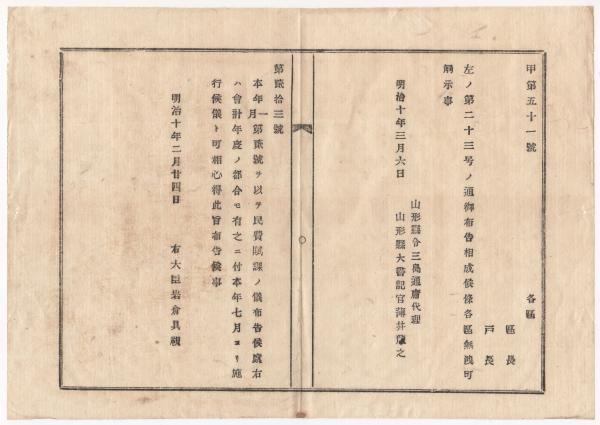 甲第五十一號
各區
區長
戸長
左ノ第二十三号ノ通御布告相成候條各區無洩可
觸示事
明治十年三月六日
山形縣令三島通庸代理
山形縣大書記官薄井龍之
第貳拾三號
本年一月第貳號ヲ以テ民費賦課ノ儀布告候處右
ハ會計年度ノ都合モ有之ニ付本年七月ヨリ施
行候儀ト可相心得此旨布告候事
明治十年二月廿四日
右大臣岩倉具視